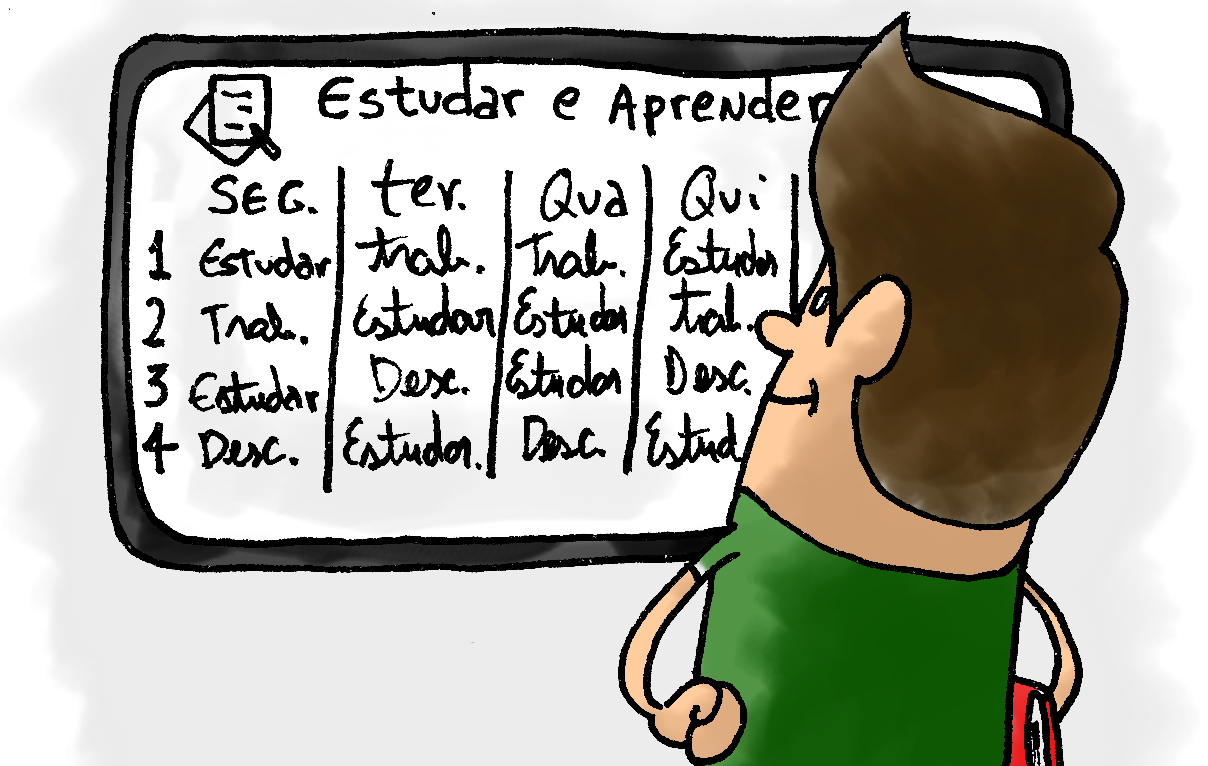 Estudar e Aprender
SEG. ter. Qua Qui
1 Estudar trab. Trab. Estudar
2 Trab. Estudar Estudar trab.
3 Estudar Desc. Estudar Desc.
4 Desc. Estudar. Desc. Estud